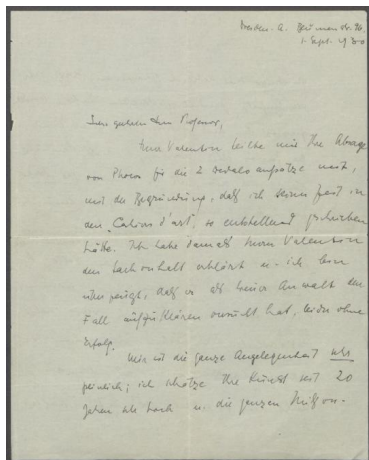 Dresden - A.
1. Sept. 1930
Sehr geehrter Herr Professor,
Herr Valentien teilte mir Ihre Absage
von Photos für die 2 Aufsätze mit,
und die Begründung, daß ich seinerzeit in
den „Cahiers d'art" so entstellend geschrieben
hätte. Ich habe damals Herrn Valentien
den Sachverhalt erklärt u. ich bin
überzeugt, daß er als Anwalt den
Fall aufzuklären versucht hat, leider ohne
Erfolg.
Mir ist die ganze Angelegenheit sehr
peinlich; ich schätze Ihre Kunst seit 20
Jahren sehr hoch u. die ganzen